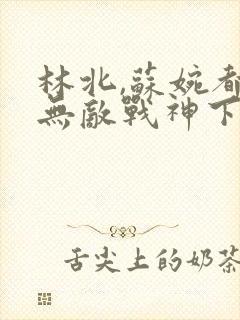 林北,蘇婉都
無敵戰神下
舌尖上的奶茶